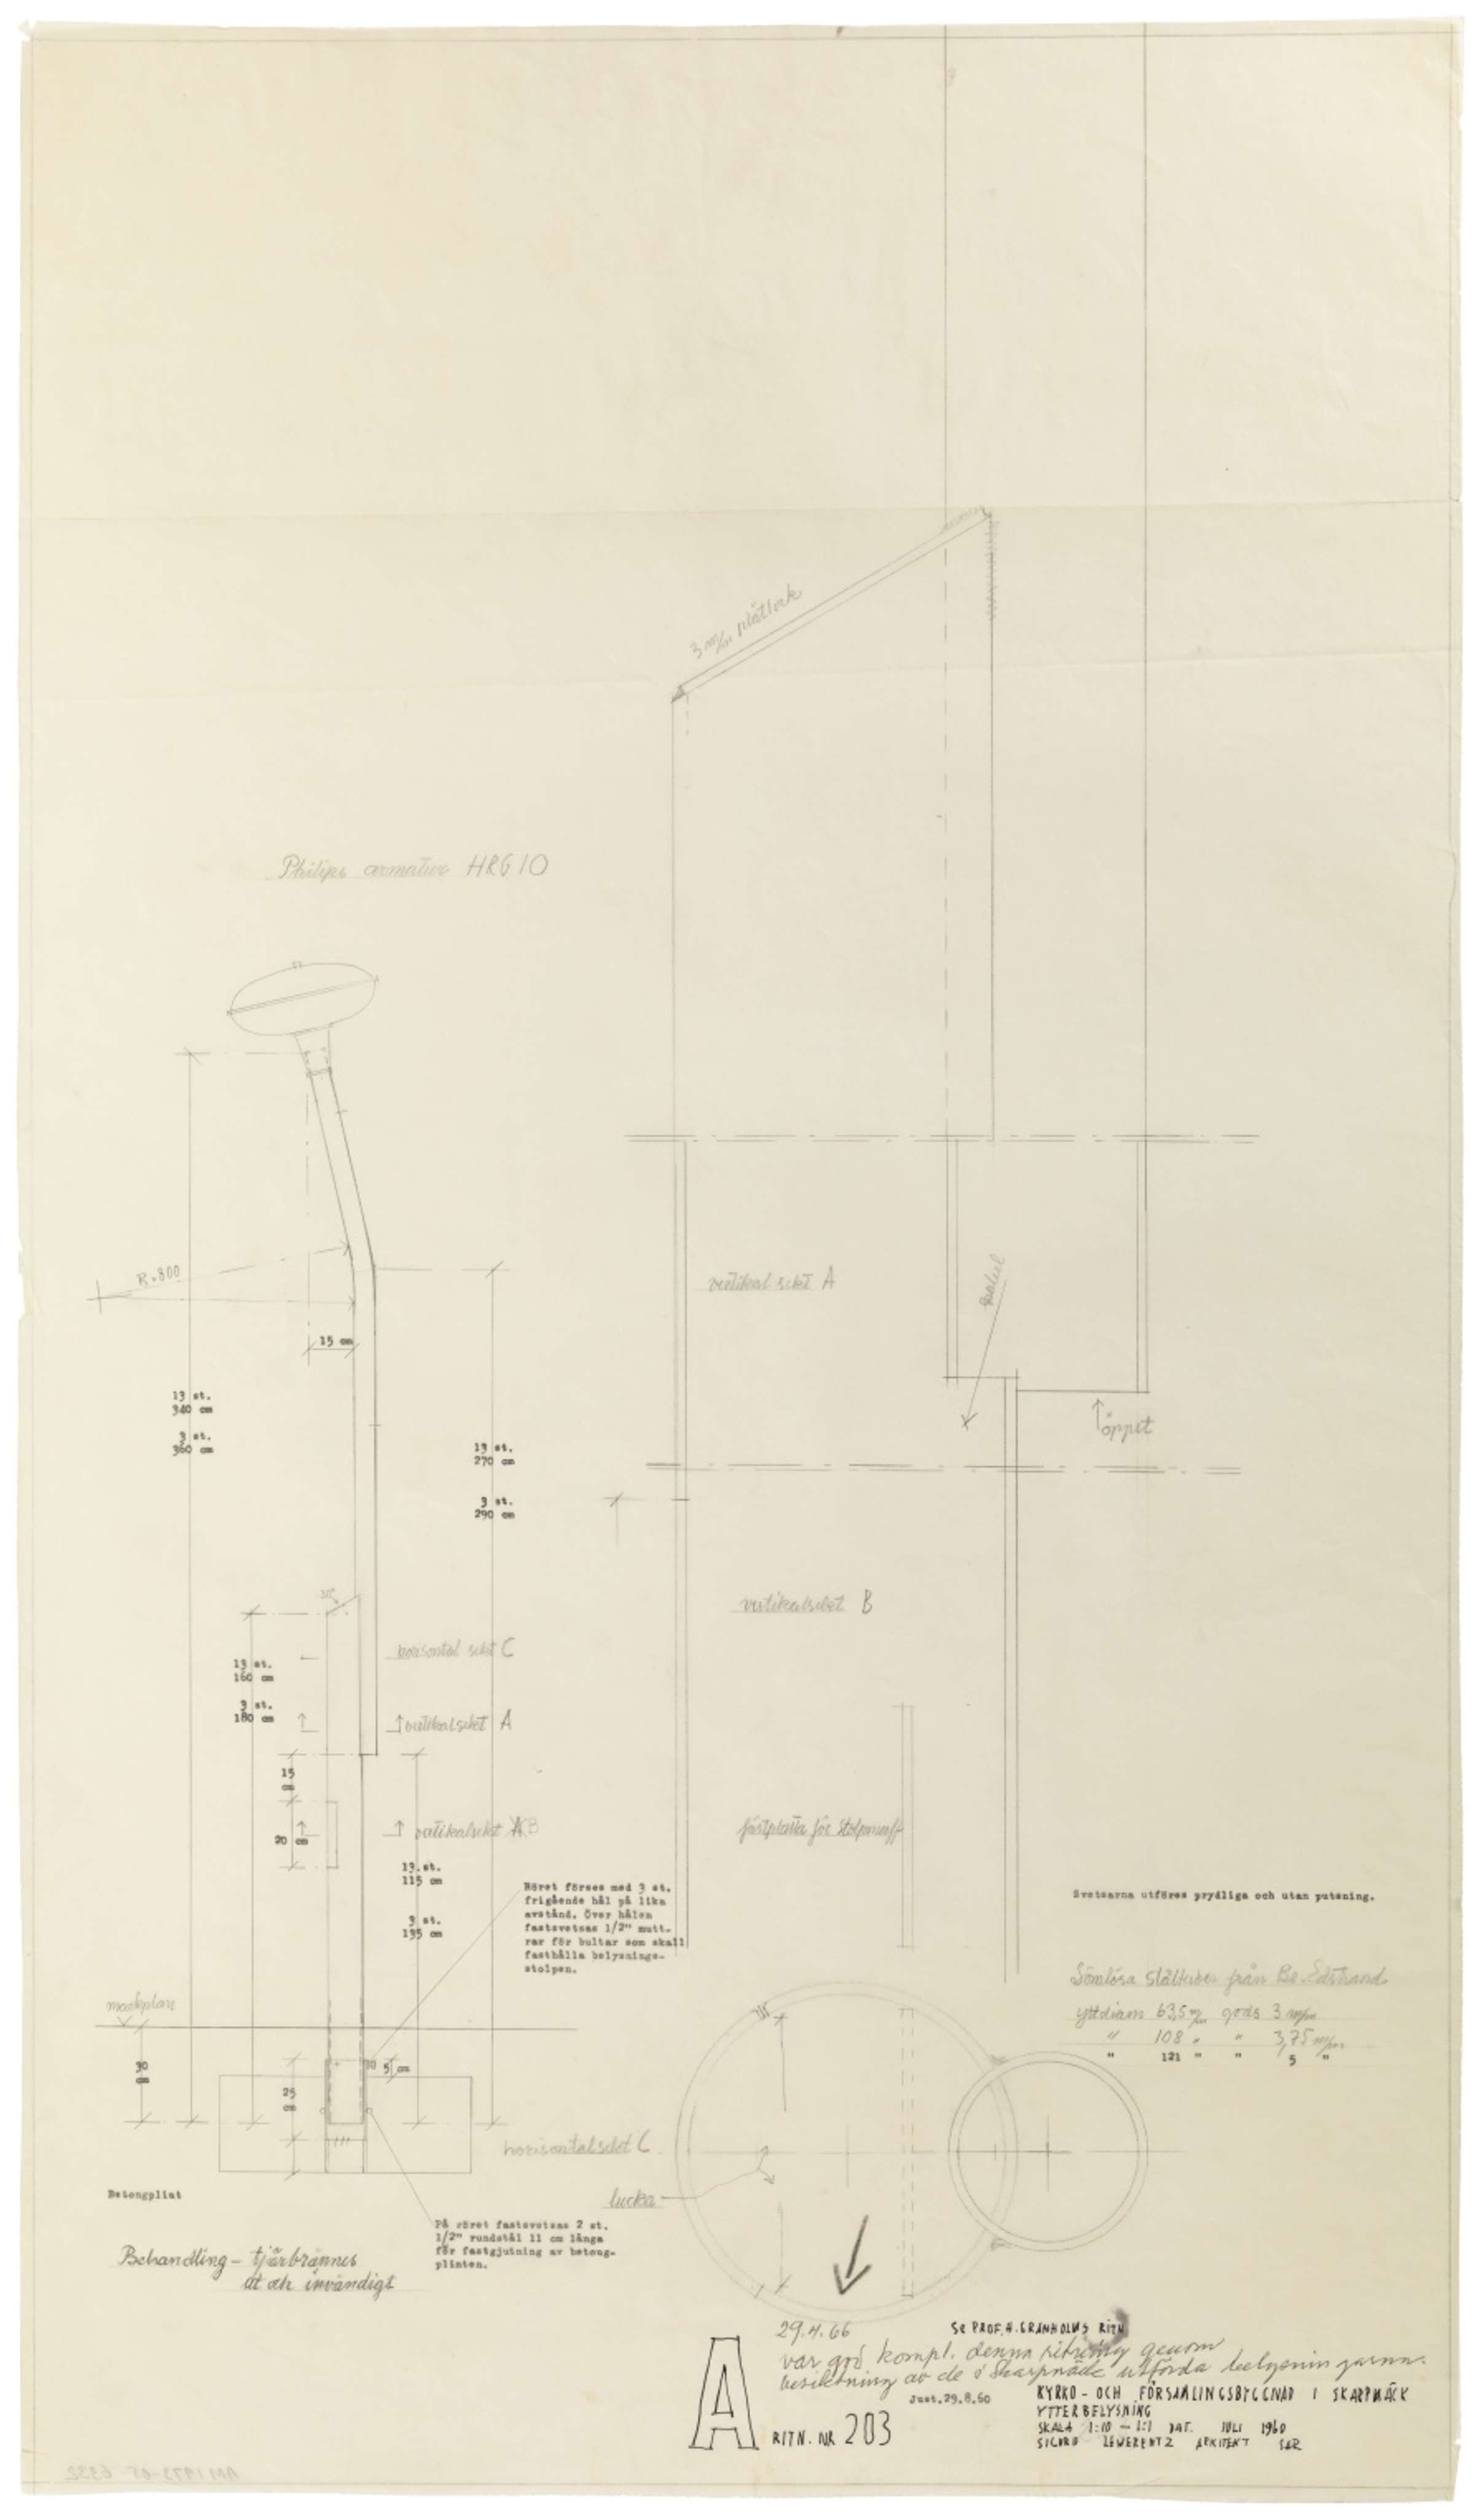 3 m/m plåtlock
Philips armatur HRG 10
R=800
15 cm
13 st.
340 cm
3 st.
360 cm
13 st.
270 cm
3 st.
290 cm
vertikal sekt A
öppet
vertikalsekt B
30°
horisontal sekt C
13 st.
160 cm
3 st.
180 cm
vertikalsekt A
15
cm
20 cm
vertikalsekt B
13 st.
115 cm
3 st.
135 cm
fästplatta för
Röret förses med 3 st.
frigående hål på lika
avstånd. Över hålen
fastsvetsas 1/2" mutt-
rar för bultar som skall
fasthålla belysnings-
stolpen.
Svetsarna utföres prydliga och utan putsning.
Sömlösa ståltuber från Br. Edstrand
yttdiam 63,5 m/m gods 3 m/m
" 108 " " 3,75 m/m
" 121 " " 5 "
markplan
30
cm
10
5 cm
25
cm
horisontalsekt C
lucka
Betongplint
På röret fastsvetsas 2 st.
1/2" rundstål 11 cm långa
för fastgjutning av betong-
plinten.
Behandling - tjärbrännes
ut och invändigt
29.4.66
SE PROF. H. GRANHOLMS RITN
var god kompl. denna ritning genom
besiktning av de i Skarpnäck utförda belysningarna.
Just. 29.8.60
KYRKO- OCH FÖRSAMLINGSBYGGNAD I SKARPNÄCK
YTTERBELYSNING
SKALA 1:10 - 1:1 DAT. JULI 1960
SIGURD LEWERENTZ ARKITEKT SAR
A
RITN. NR 203
AM 1973-05 6332